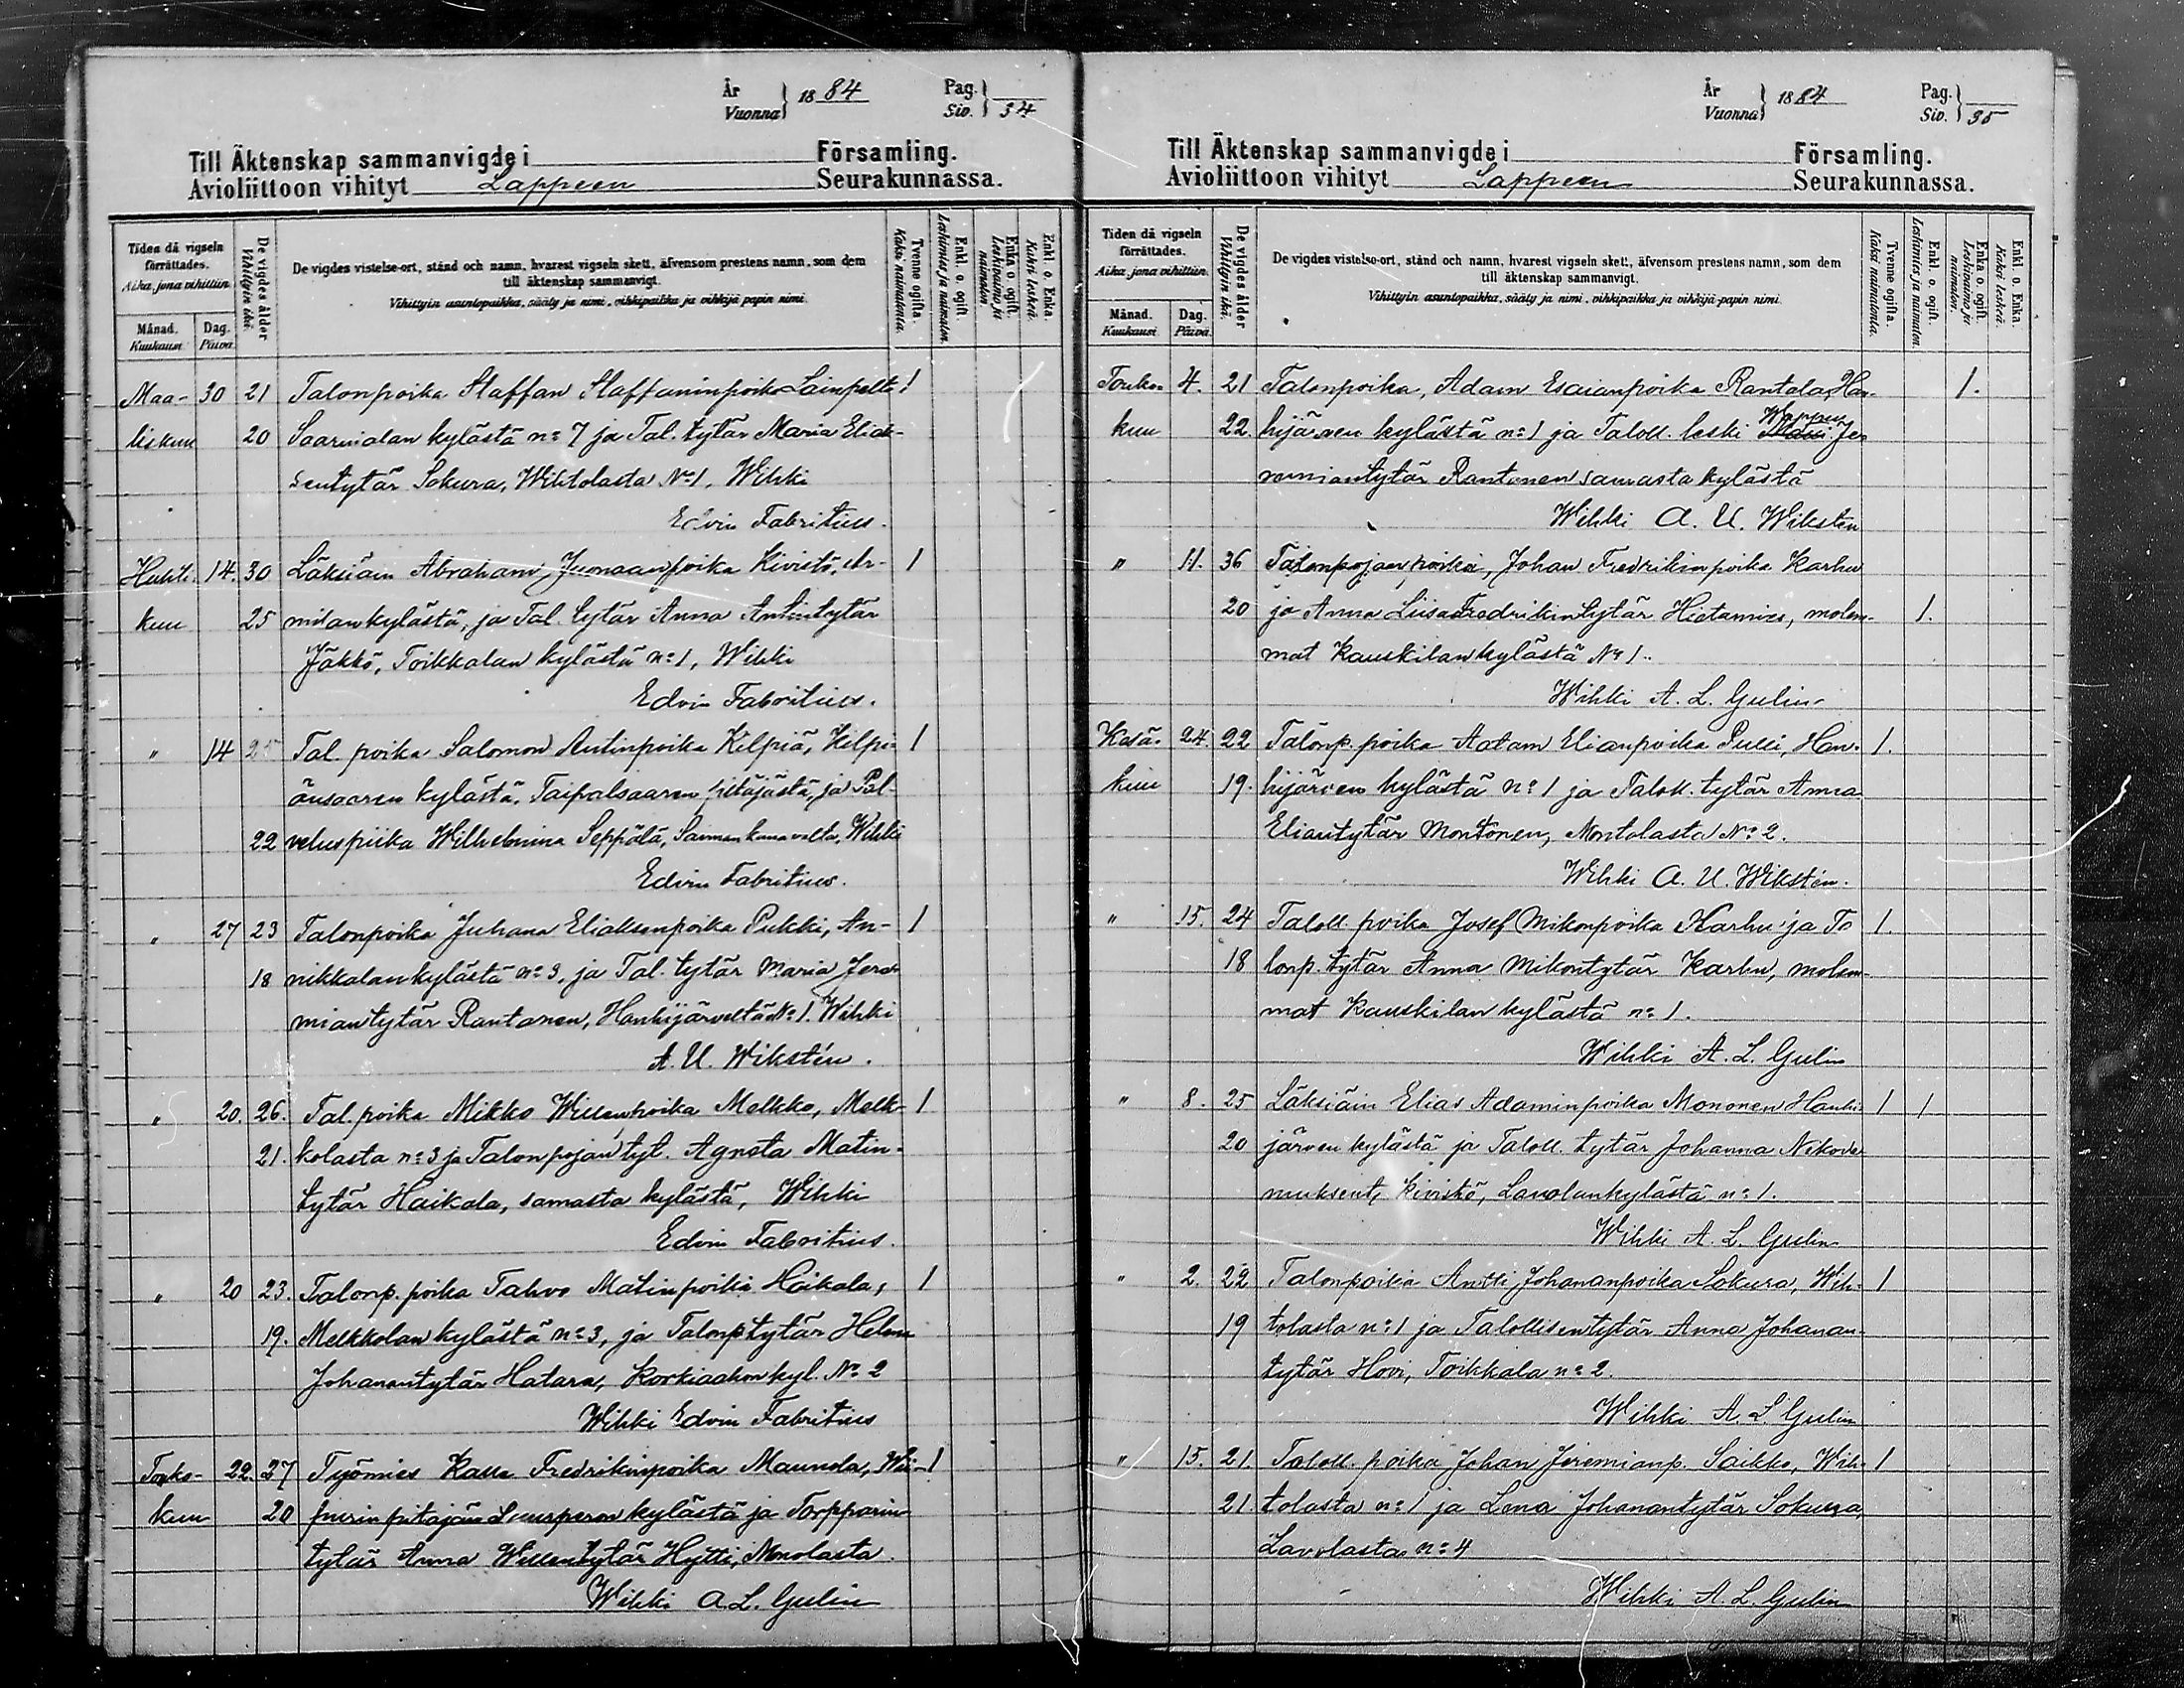 År
Vuonna } 1884
Pag.
Siv. } 34
Till Äktenskap sammanvigde i Församling.
Avioliittoon vihityt Lappeen Seurakunnassa.
Tiden då vigseln förrättades.
Aika, jona vihittiin.
Månad.
Kuukausi
Dag.
Päivä.
De vigdes ålder
Vihittyin ikä.
De vigdes vistelse-ort, stånd och namn, hvarest vigseln skett, äfvensom prestens namn, som dem
till äktenskap sammanvigt.
Vihittyin asuntopaikka, sääty ja nimi, vihkipaikka ja vihkijä papin nimi.
Tvenne ogifta.
Kaksi naimatonta.
Enkl. o. ogift.
Leskimies ja naimaton.
Enka o. ogift.
Leskivaimo ja naimaton.
Enkl. o. Enka.
Kaksi leskeä.
Maa- 30 21 Talonpoika Staffan Staffaninpoika Lainpelto 1
liskuu 20 Saarialan kylästä no 7 ja Tal. tytär Maria Eliak-
sentytär Sokura, Wihtolasta No 1. Wihki
Edvin Fabritius.
Huhti 14. 30 Läksiäin Abraham Juonaanpoika Kivistö, Ar- 1
kuu 25 milankylästä, ja Tal. tytär Anna Antintytär
Jäkkö, Toikkalan kylästä no 1, Wihki
Edvin Fabritius.
" 14 25 Tal. poika Salomon Antinpoika Kilpiä, Kilpi- 1
änsaaren kylästä, Taipalsaaren pitäjästä, ja Pal-
22 veluspiika Wilhelmina Seppälä, Saiman kanavalta, Wihki
Edvin Fabritius.
" 27 23 Talonpoika Juhana Eliaksenpoika Pukki, An- 1
18 nikkalankylästä no 3, ja Tal. tytär Maria Jere-
miantytär Rantanen, Hanhijärveltä No 1. Wihki
A. U. Wikstén.
" 20. 26. Tal. poika Mikko Willenpoika Melkko, Melk- 1
21. kolasta no 3 ja Talonpojan tyt. Agneta Matin-
tytär Haikala, samasta kylästä, Wihki
Edvin Fabritius.
" 20 23. Talonp. poika Tahvo Matinpoika Haikala, 1
19. Melkkolan kylästä no 3, ja Talonp tytär Helena
Johanantytär Hatara, Korkiaahon kyl. No 2
Wihki Edvin Fabritius
Touko- 22. 27 Työmies Kalle Fredrikinpoika Maunola, Wii- 1
kuu 20 purin pitäjän kylästä ja Torpparin
tytär Anna Willentytär Hytti, Monolasta.
Wihki A. L. Gulin
År
Vuonna } 1884
Pag.
Siv. } 35
Till Äktenskap sammanvigde i Församling.
Avioliittoon vihityt Lappeen Seurakunnassa.
Tiden då vigseln förrättades.
Aika, jona vihittiin.
Månad.
Kuukausi
Dag.
Päivä.
De vigdes ålder
Vihittyin ikä.
De vigdes vistelse-ort, stånd och namn, hvarest vigseln skett, äfvensom prestens namn, som dem
till äktenskap sammanvigt.
Vihittyin asuntopaikka, sääty ja nimi, vihkipaikka ja vihkijä-papin nimi
Tvenne ogifta.
Kaksi naimatonta.
Enkl. o. ogift.
Leskimies ja naimaton.
Enka o. ogift.
Leskivaimo ja naimaton.
Enkl. o. Enka.
Kaksi leskeä.
Touko- 4. 21 Talonpoika, Adam Esaianpoika Rantala, Han- 1.
Wappu
kuu 22. hijärven kylästä no 1 ja Taloll. leski Jer
remiantytär Rantanen samasta kylästä
Wihki A. U. Wikstén
" 11. 36 Talonpojan poika, Johan Fredrikinpoika Karhu
20 ja Anna Liisa Fredrikintytär Hietamies, molem- 1.
mat Kauskilankylästä No 1.
Wihki A. L. Gulin
Kesä- 24. 22 Talonp. poika Aatam Elianpoika Pulli, Han- 1.
kuu 19. hijärven kylästä no 1 ja Taloll. tytär Anna
Eliantytär Montonen, Montolasta No 2.
Wihki A. U. Wikstén.
" 15. 24 Taloll. poika Josef Mikonpoika Karhu ja Ta 1.
18 lonp. tytär Anna Mikontytär Karhu, molem-
mat Kauskilan kylästä no 1.
Wihki A. L. Gulin
" 8. 25 Läksiäin Elias Adaminpoika Mononen Hanhi 1 1
20 järven kylästä ja Taloll. tytär Johanna Nikode-
muksent. Kivistö, Lavolankylästä no 1.
Wihki A. L. Gulin
" 2. 22 Talonpoika Antti Johananpoika Sokura, Wih- 1
19 tolasta no 1 ja Talollisentytär Anna Johanan-
tytär Hovi, Toikkala no 2.
Wihki A. L. Gulin
" 15. 21. Taloll. poika Johan Jeremianp. Saikko, Wih- 1
21. tolasta no 1 ja Lena Johanantytär Sokura,
Lavolasta no 4
Wihki A. L. Gulin